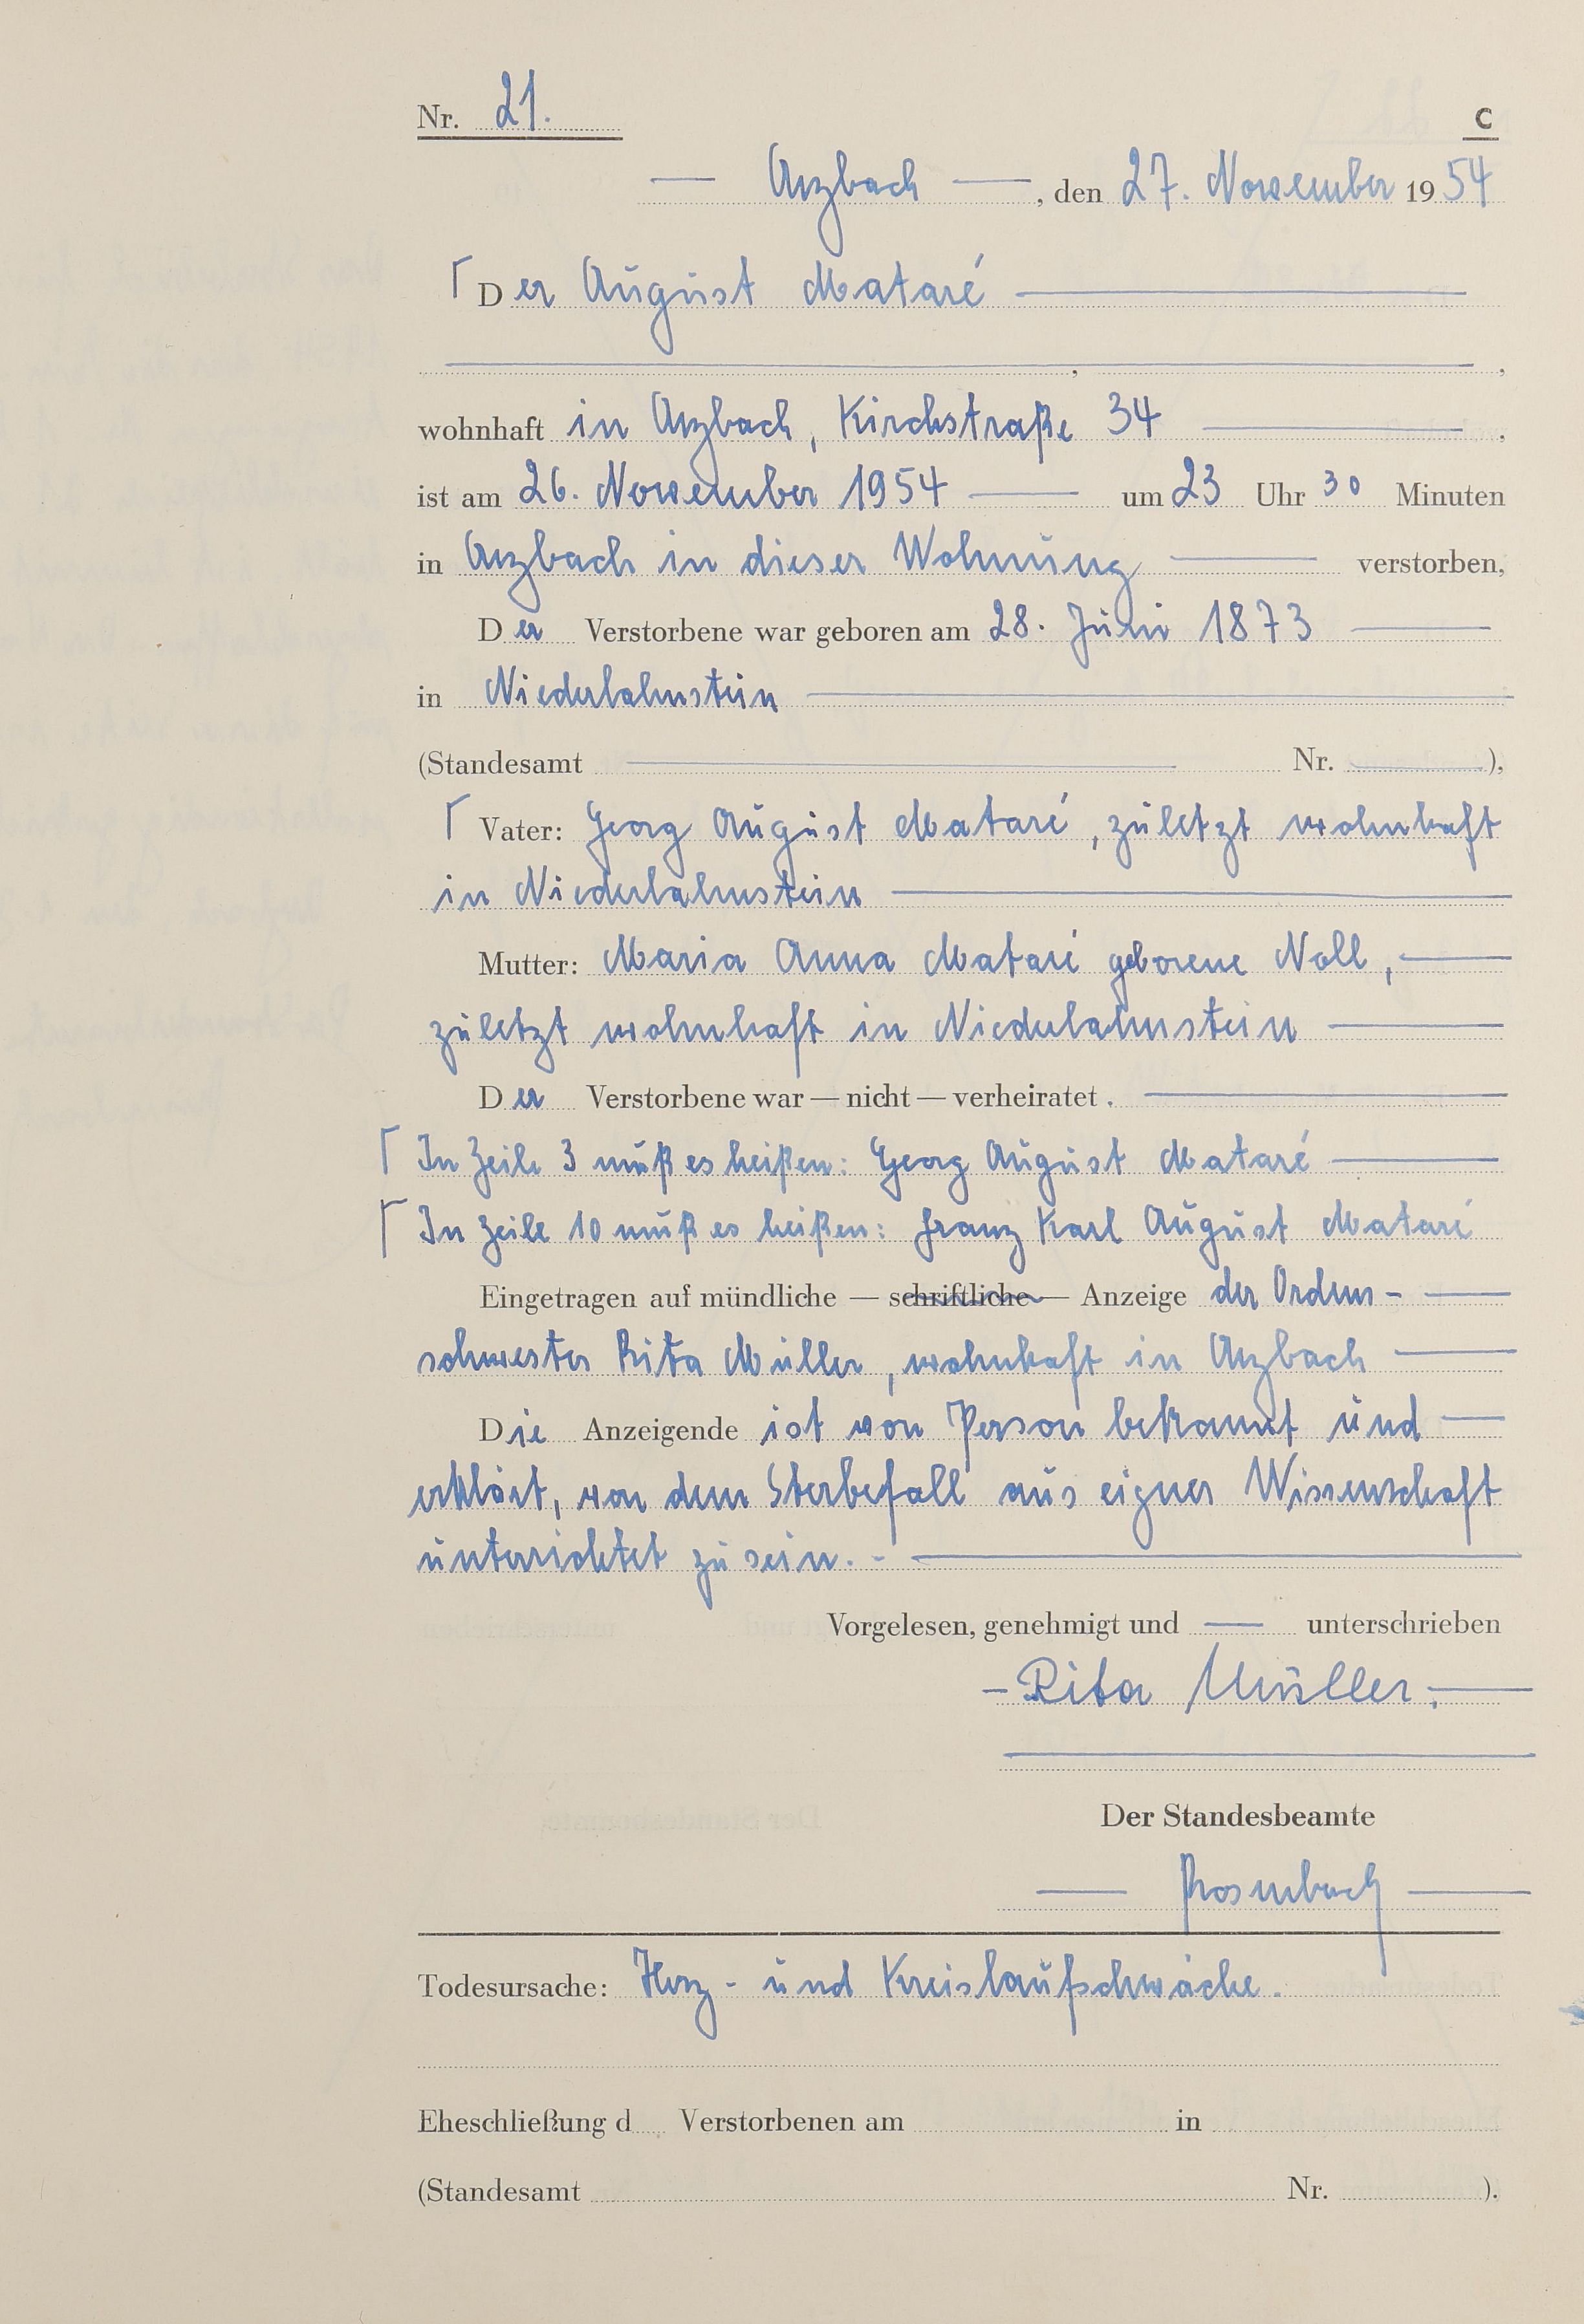 Nr. 21. C
— Arzbach —, den 27. November 1954
⌈ Der August Mataré —
—, —,
wohnhaft in Arzbach, Kirchstraße 34 —,
ist am 26. November 1954 — um 23 Uhr 30 Minuten
in Arzbach in dieser Wohnung — verstorben,
Der Verstorbene war geboren am 28. Juni 1873 —
in Niederlahnstein —
(Standesamt — Nr. —),
⌈ Vater: Georg August Mataré, zuletzt wohnhaft
in Niederlahnstein —
Mutter: Maria Anna Mataré geborene Noll, —
zuletzt wohnhaft in Niederlahnstein —
Der Verstorbene war — nicht — verheiratet. —
⌈ In Zeile 3 muß es heißen: Georg August Mataré —
⌈ In Zeile 10 muß es heißen: Franz Karl August Mataré
Eingetragen auf mündliche — schriftliche — Anzeige der Ordens- —
schwester Rita Müller, wohnhaft in Arzbach —
Die Anzeigende ist von Person bekannt und —
erklärt, von dem Sterbefall aus eigner Wissenschaft
unterrichtet zu sein. - —
Vorgelesen, genehmigt und — unterschrieben
- Rita Müller. —
Der Standesbeamte
— Rosenbach —
Todesursache: Herz- und Kreislaufschwäche.
Eheschließung d Verstorbenen am in
(Standesamt Nr. ).